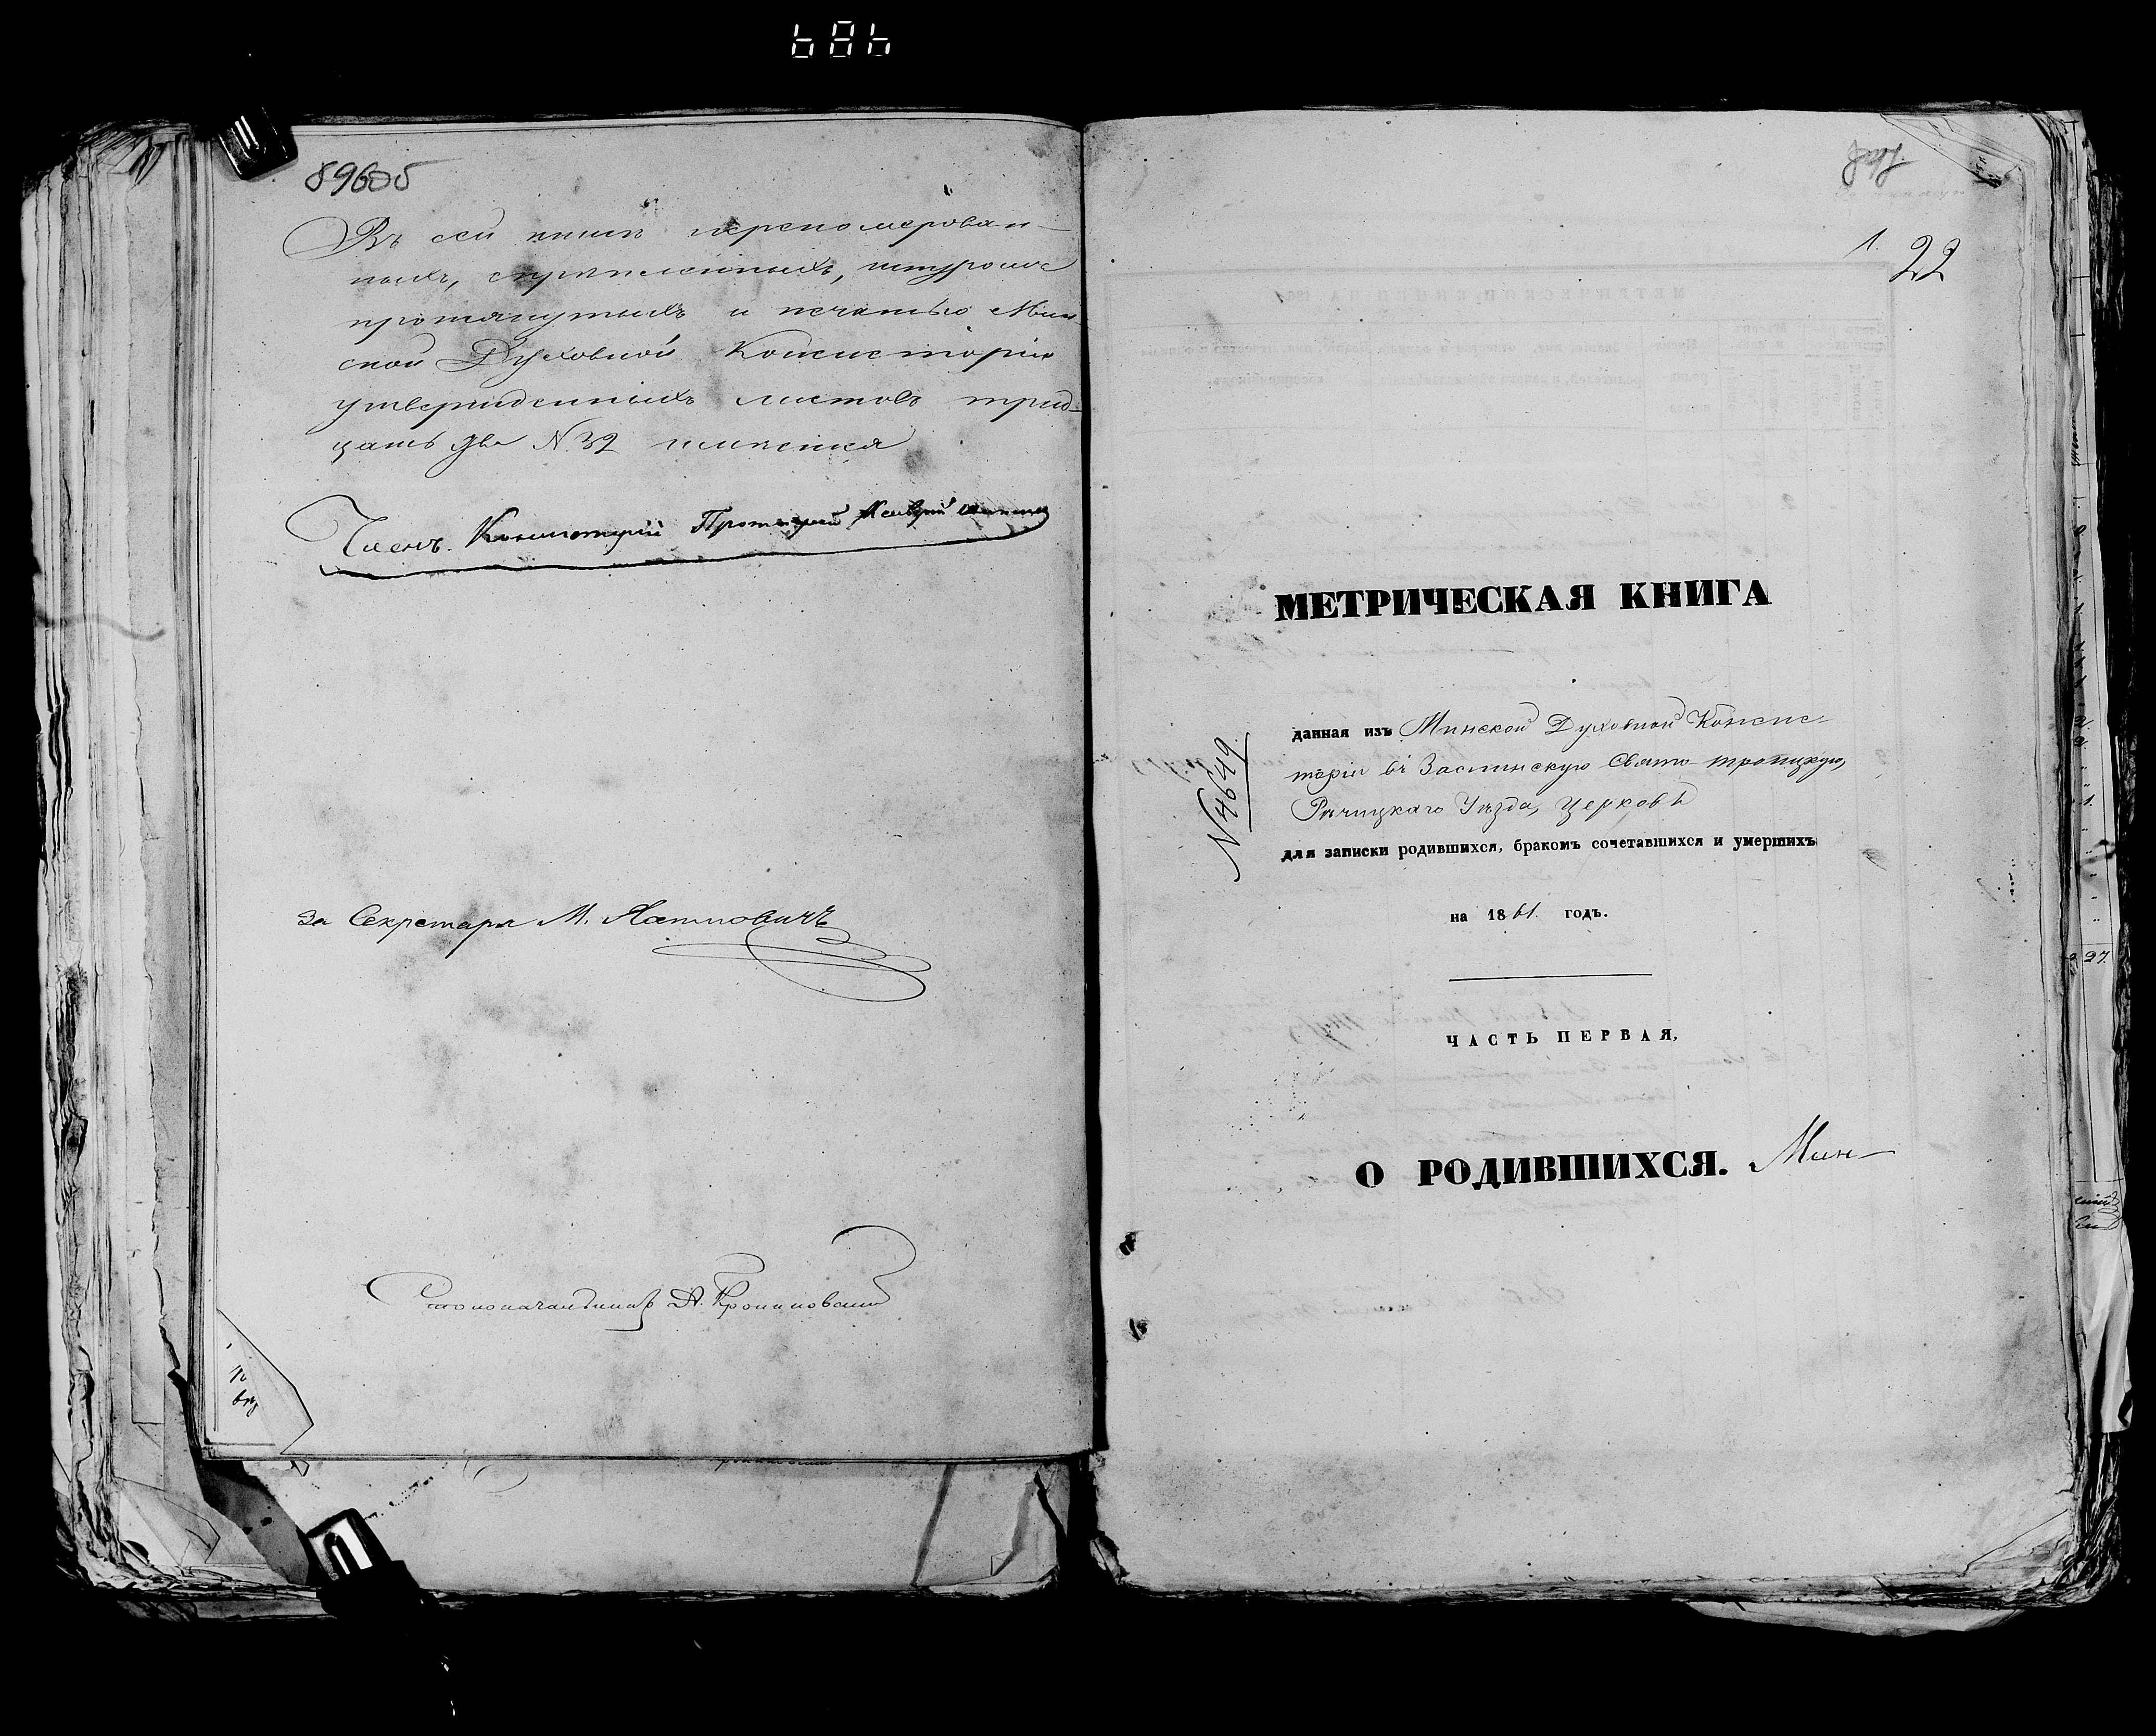 896об
Въ сей книгѣ переномерован-
ныхъ, скрѣпленныхъ, шнуромъ
протянутыхъ и печатью Мин
ской Духовной Консисторіи
утвержденныхъ листовъ трид-
цать два №32 имѣется
Членъ Консисторіи Протоіерей
За Секретаря М.
Столоначальникъ А.
1. 22
МЕТРИЧЕСКАЯ КНИГА
данная изъ Минской Духовной Консис-
торіи въ Заспинскую Свято Троицкую,
Рѣчицкаго Уѣзда, Церковь
№4649
для записки родившихся, бракомъ сочетавшихся и умершихъ
на 1861 годъ.
ЧАСТЬ ПЕРВАЯ,
О РОДИВШИХСЯ. Мин